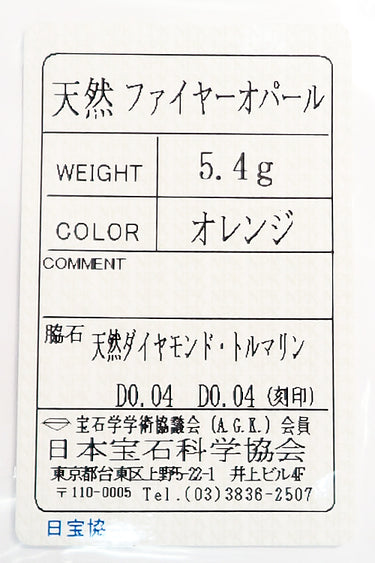 天然 ファイヤーオパール
WEIGHT 5.4g
COLOR オレンジ
COMMENT
脇石 天然ダイヤモンド・トルマリン
D0.04 D0.04 (刻印)
宝石学学術協議会 (A.G.K.) 会員
日本宝石科学協会
東京都台東区上野5-22-1 井上ビル4F
〒110-0005 Tel.(03)3836-2507
日宝協